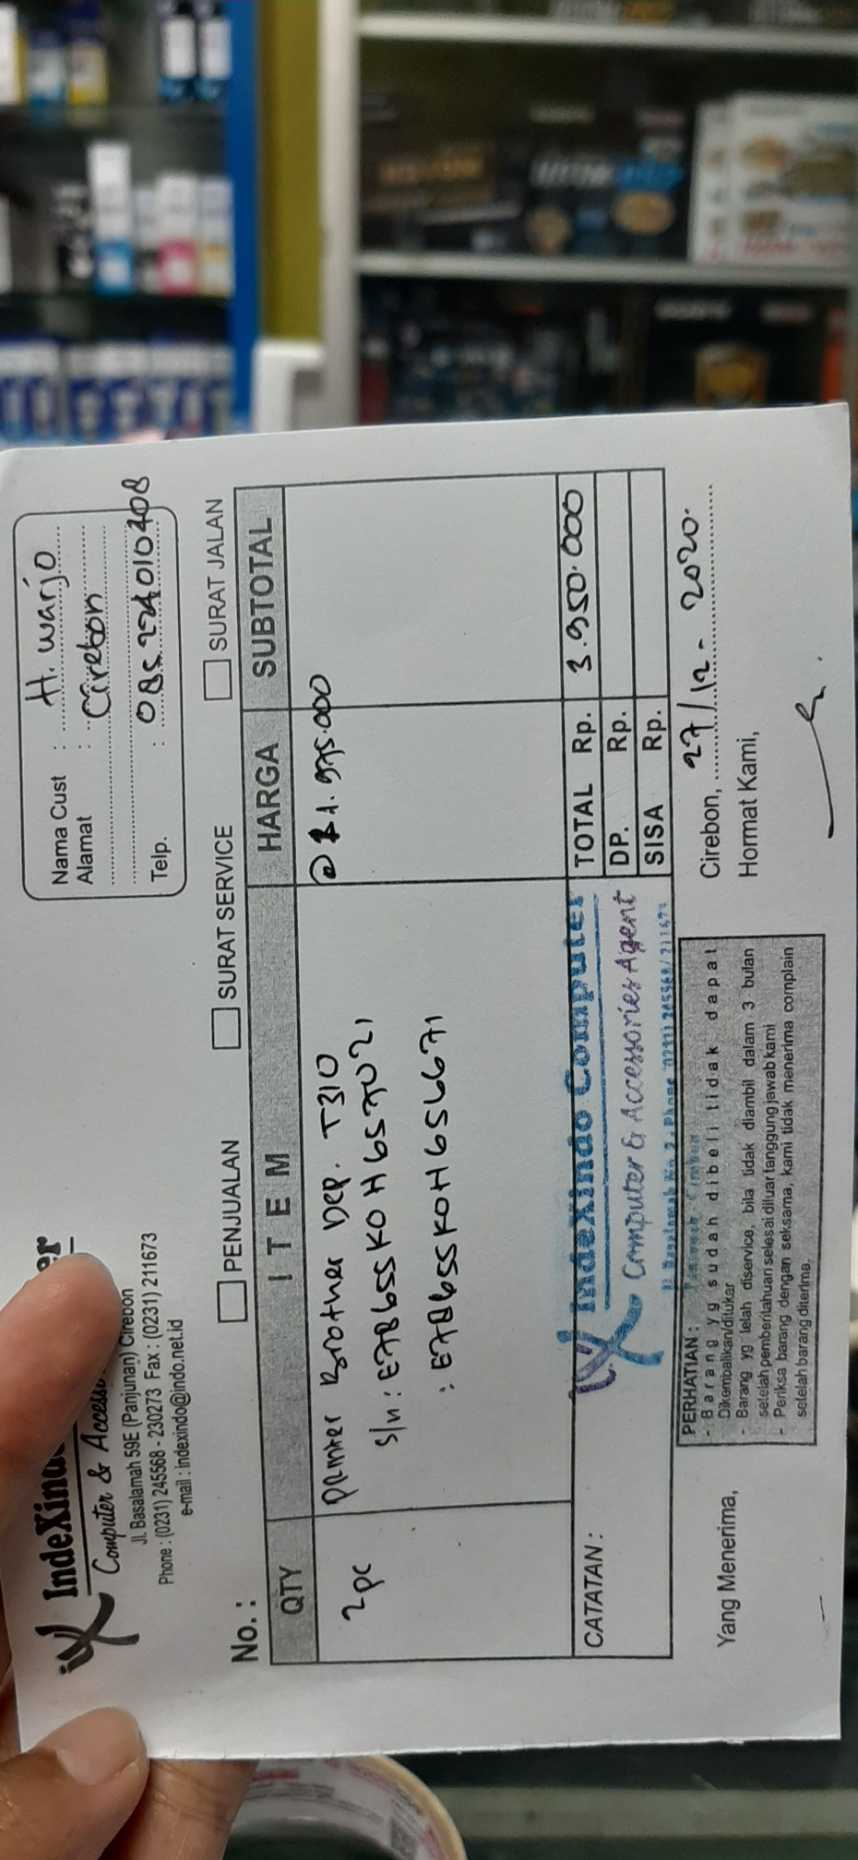 IndeXindo
Computer & Access
Jl. Basalamah 59E (Panjunan) Cirebon
Phone : (0231) 245568 - 230273 Fax : (0231) 211673
e-mail : indexindo@indo.net.id
Nama Cust : H. Warjo
Alamat : Cirebon
Telp. : 085224010408
No. :
PENJUALAN SURAT SERVICE SURAT JALAN
QTY ITEM HARGA SUBTOTAL
2pc Printer Brother DCP. T310 @ 1.975.000
S/N : E78655K0H657021
: E78655K0H656671
CATATAN :
TOTAL Rp. 3.950.000
DP. Rp.
SISA Rp.
IndeXindo Computer
Computer & Accessories Agent
Yang Menerima,
PERHATIAN :
- Barang yg sudah dibeli tidak dapat
Dikembalikan/ditukar
- Barang yg telah diservice, bila tidak diambil dalam 3 bulan
setelah pemberitahuan selesai diluar tanggung jawab kami
- Periksa barang dengan seksama, kami tidak menerima complain
setelah barang diterima.
Cirebon, 27/12 - 2020.
Hormat Kami,